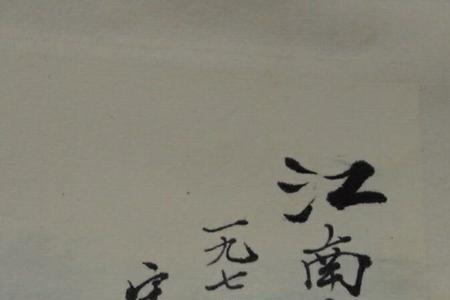 江南
一九七